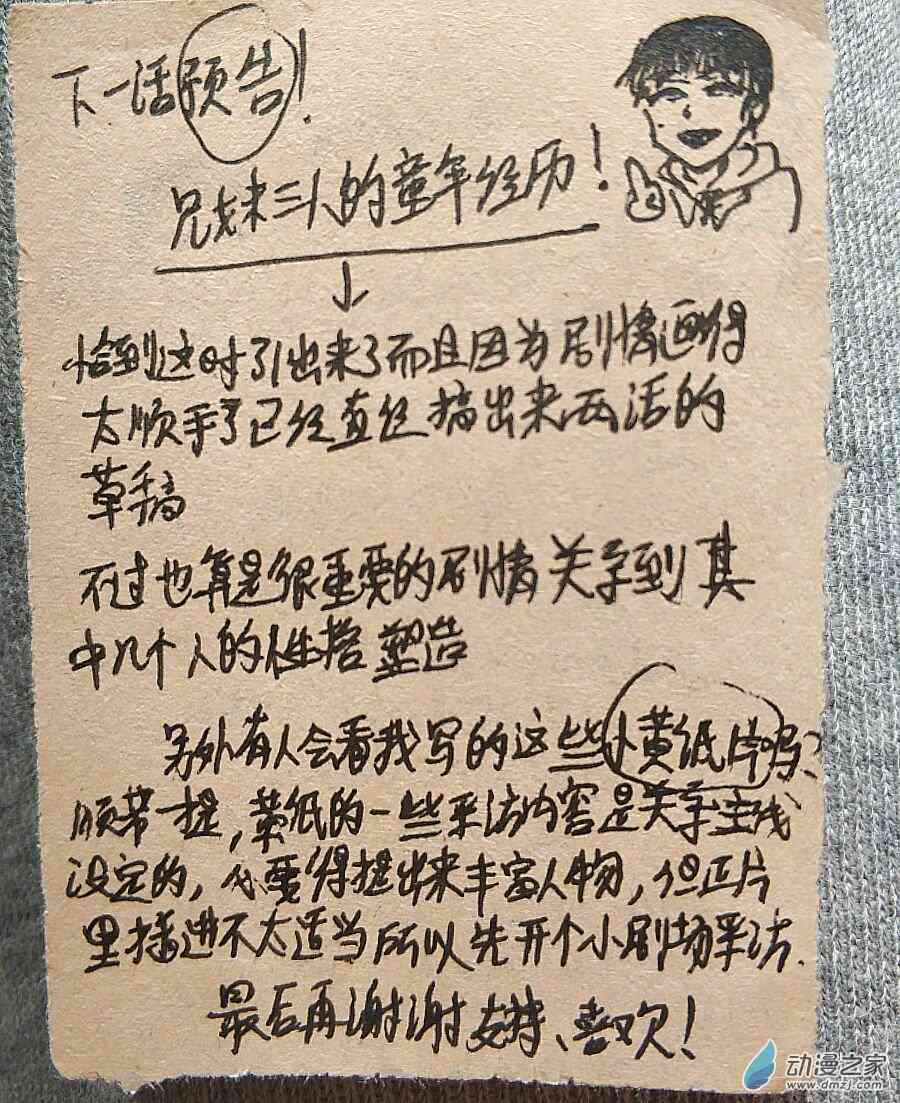 下一话预告!
兄妹三人的童年经历!
恰到这时引出来了而且因为剧情画得
太顺手了已经直经搞出来两话的
草稿
不过也算是很重要的剧情关乎到其
中几个人的性格塑造
另外有人会看我写的这些小黄纸片吗?
顺带一提,黄纸的一些采访内容是关乎主线
设定的,必要得提出来丰富人物,但正片
里插进不太适当所以先开个小剧场采访.
最后再谢谢支持、喜欢!
动漫之家
www.dmzj.com